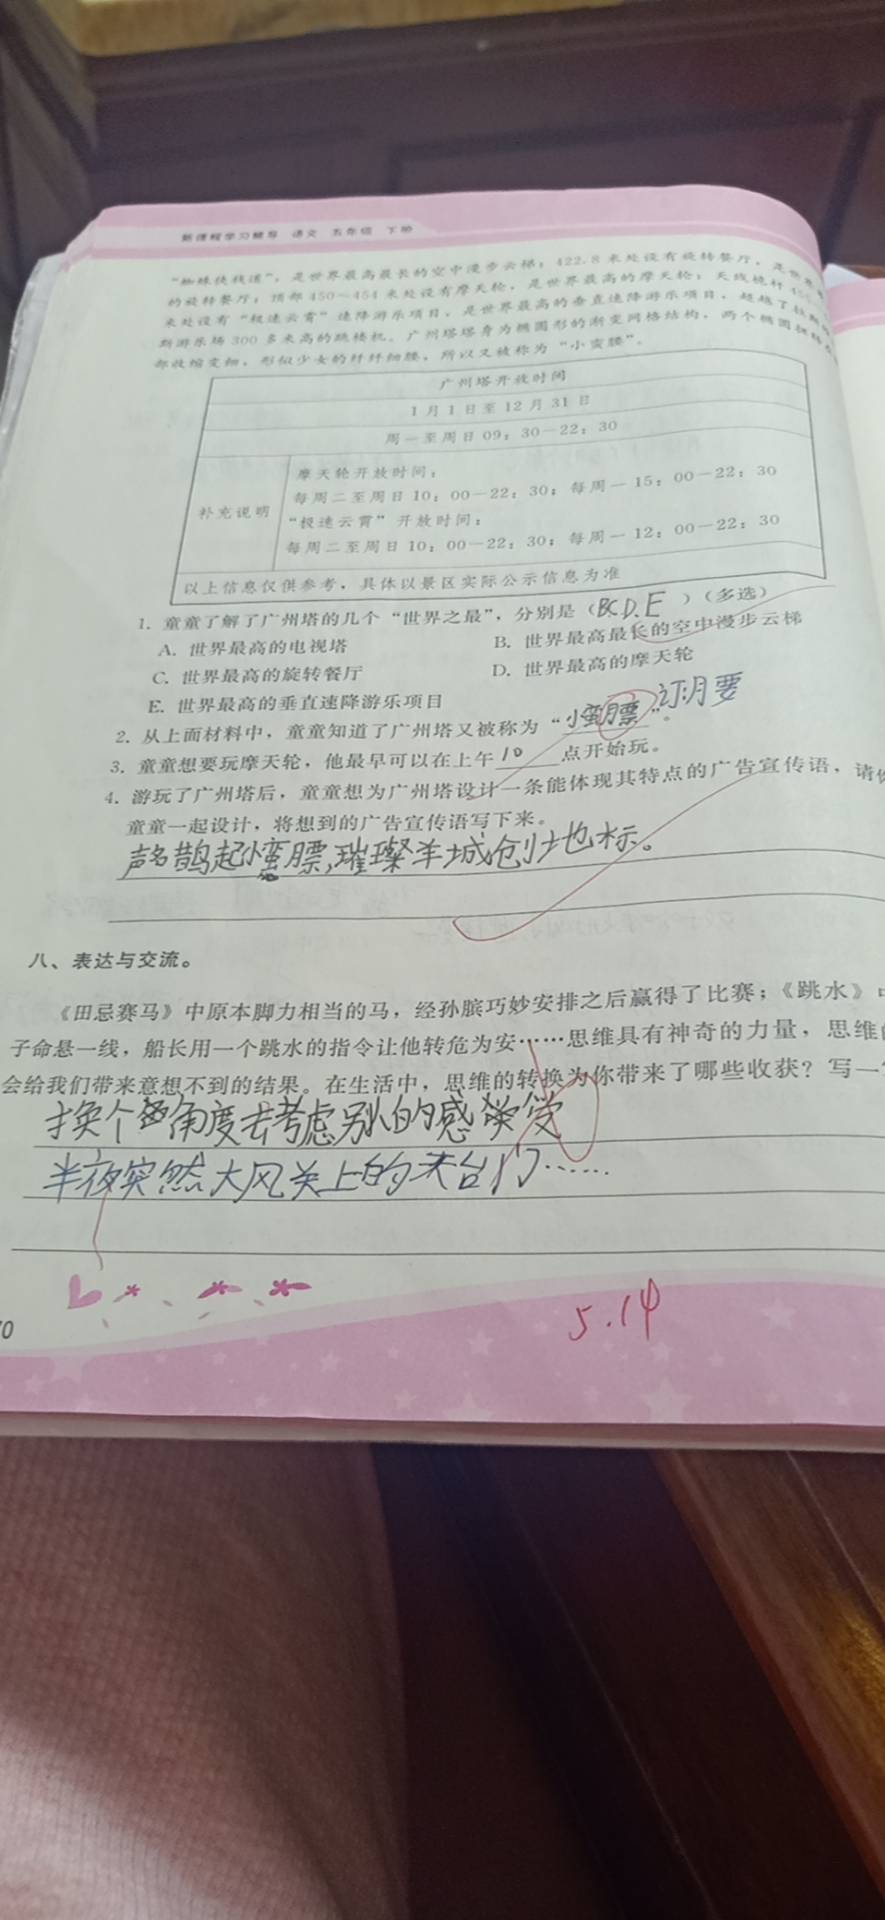 新课程学习辅导 语文 五年级 下册
“蜘蛛侠栈道”，是世界最高最长的空中漫步云梯；422.8 米处设有旋转餐厅，是世界最高
的旋转餐厅；顶部 450～454 米处设有摩天轮，是世界最高的摩天轮；天线桅杆
米处设有“极速云霄”速降游乐项目，是世界最高的垂直速降游乐项目，超越了
斯游乐场 300 多米高的跳楼机。广州塔塔身为椭圆形的渐变网格结构，两个椭圆
部收缩变细，形似少女的纤纤细腰，所以又被称为“小蛮腰”。
广州塔开放时间
1 月 1 日至 12 月 31 日
周一至周日 09：30—22：30
补充说明
摩天轮开放时间：
每周二至周日 10：00—22：30；每周一 15：00—22：30
“极速云霄”开放时间：
每周二至周日 10：00—22：30；每周一 12：00—22：30
以上信息仅供参考，具体以景区实际公示信息为准
1. 童童了解了广州塔的几个“世界之最”，分别是（BCD、E）（多选）
A. 世界最高的电视塔 B. 世界最高最长的空中漫步云梯
C. 世界最高的旋转餐厅 D. 世界最高的摩天轮
E. 世界最高的垂直速降游乐项目
2. 从上面材料中，童童知道了广州塔又被称为“小蛮膘”。订:腰
3. 童童想要玩摩天轮，他最早可以在上午10点开始玩。
4. 游玩了广州塔后，童童想为广州塔设计一条能体现其特点的广告宣传语，请你
童童一起设计，将想到的广告宣传语写下来。
声名鹊起小蛮膘,璀璨羊城创地标。
八、表达与交流。
《田忌赛马》中原本脚力相当的马，经孙膑巧妙安排之后赢得了比赛；《跳水》中
子命悬一线，船长用一个跳水的指令让他转危为安……思维具有神奇的力量，思维的
会给我们带来意想不到的结果。在生活中，思维的转换为你带来了哪些收获？写一
换个角度去考虑别人的感受
半夜突然大风关上的天台门……
5.14